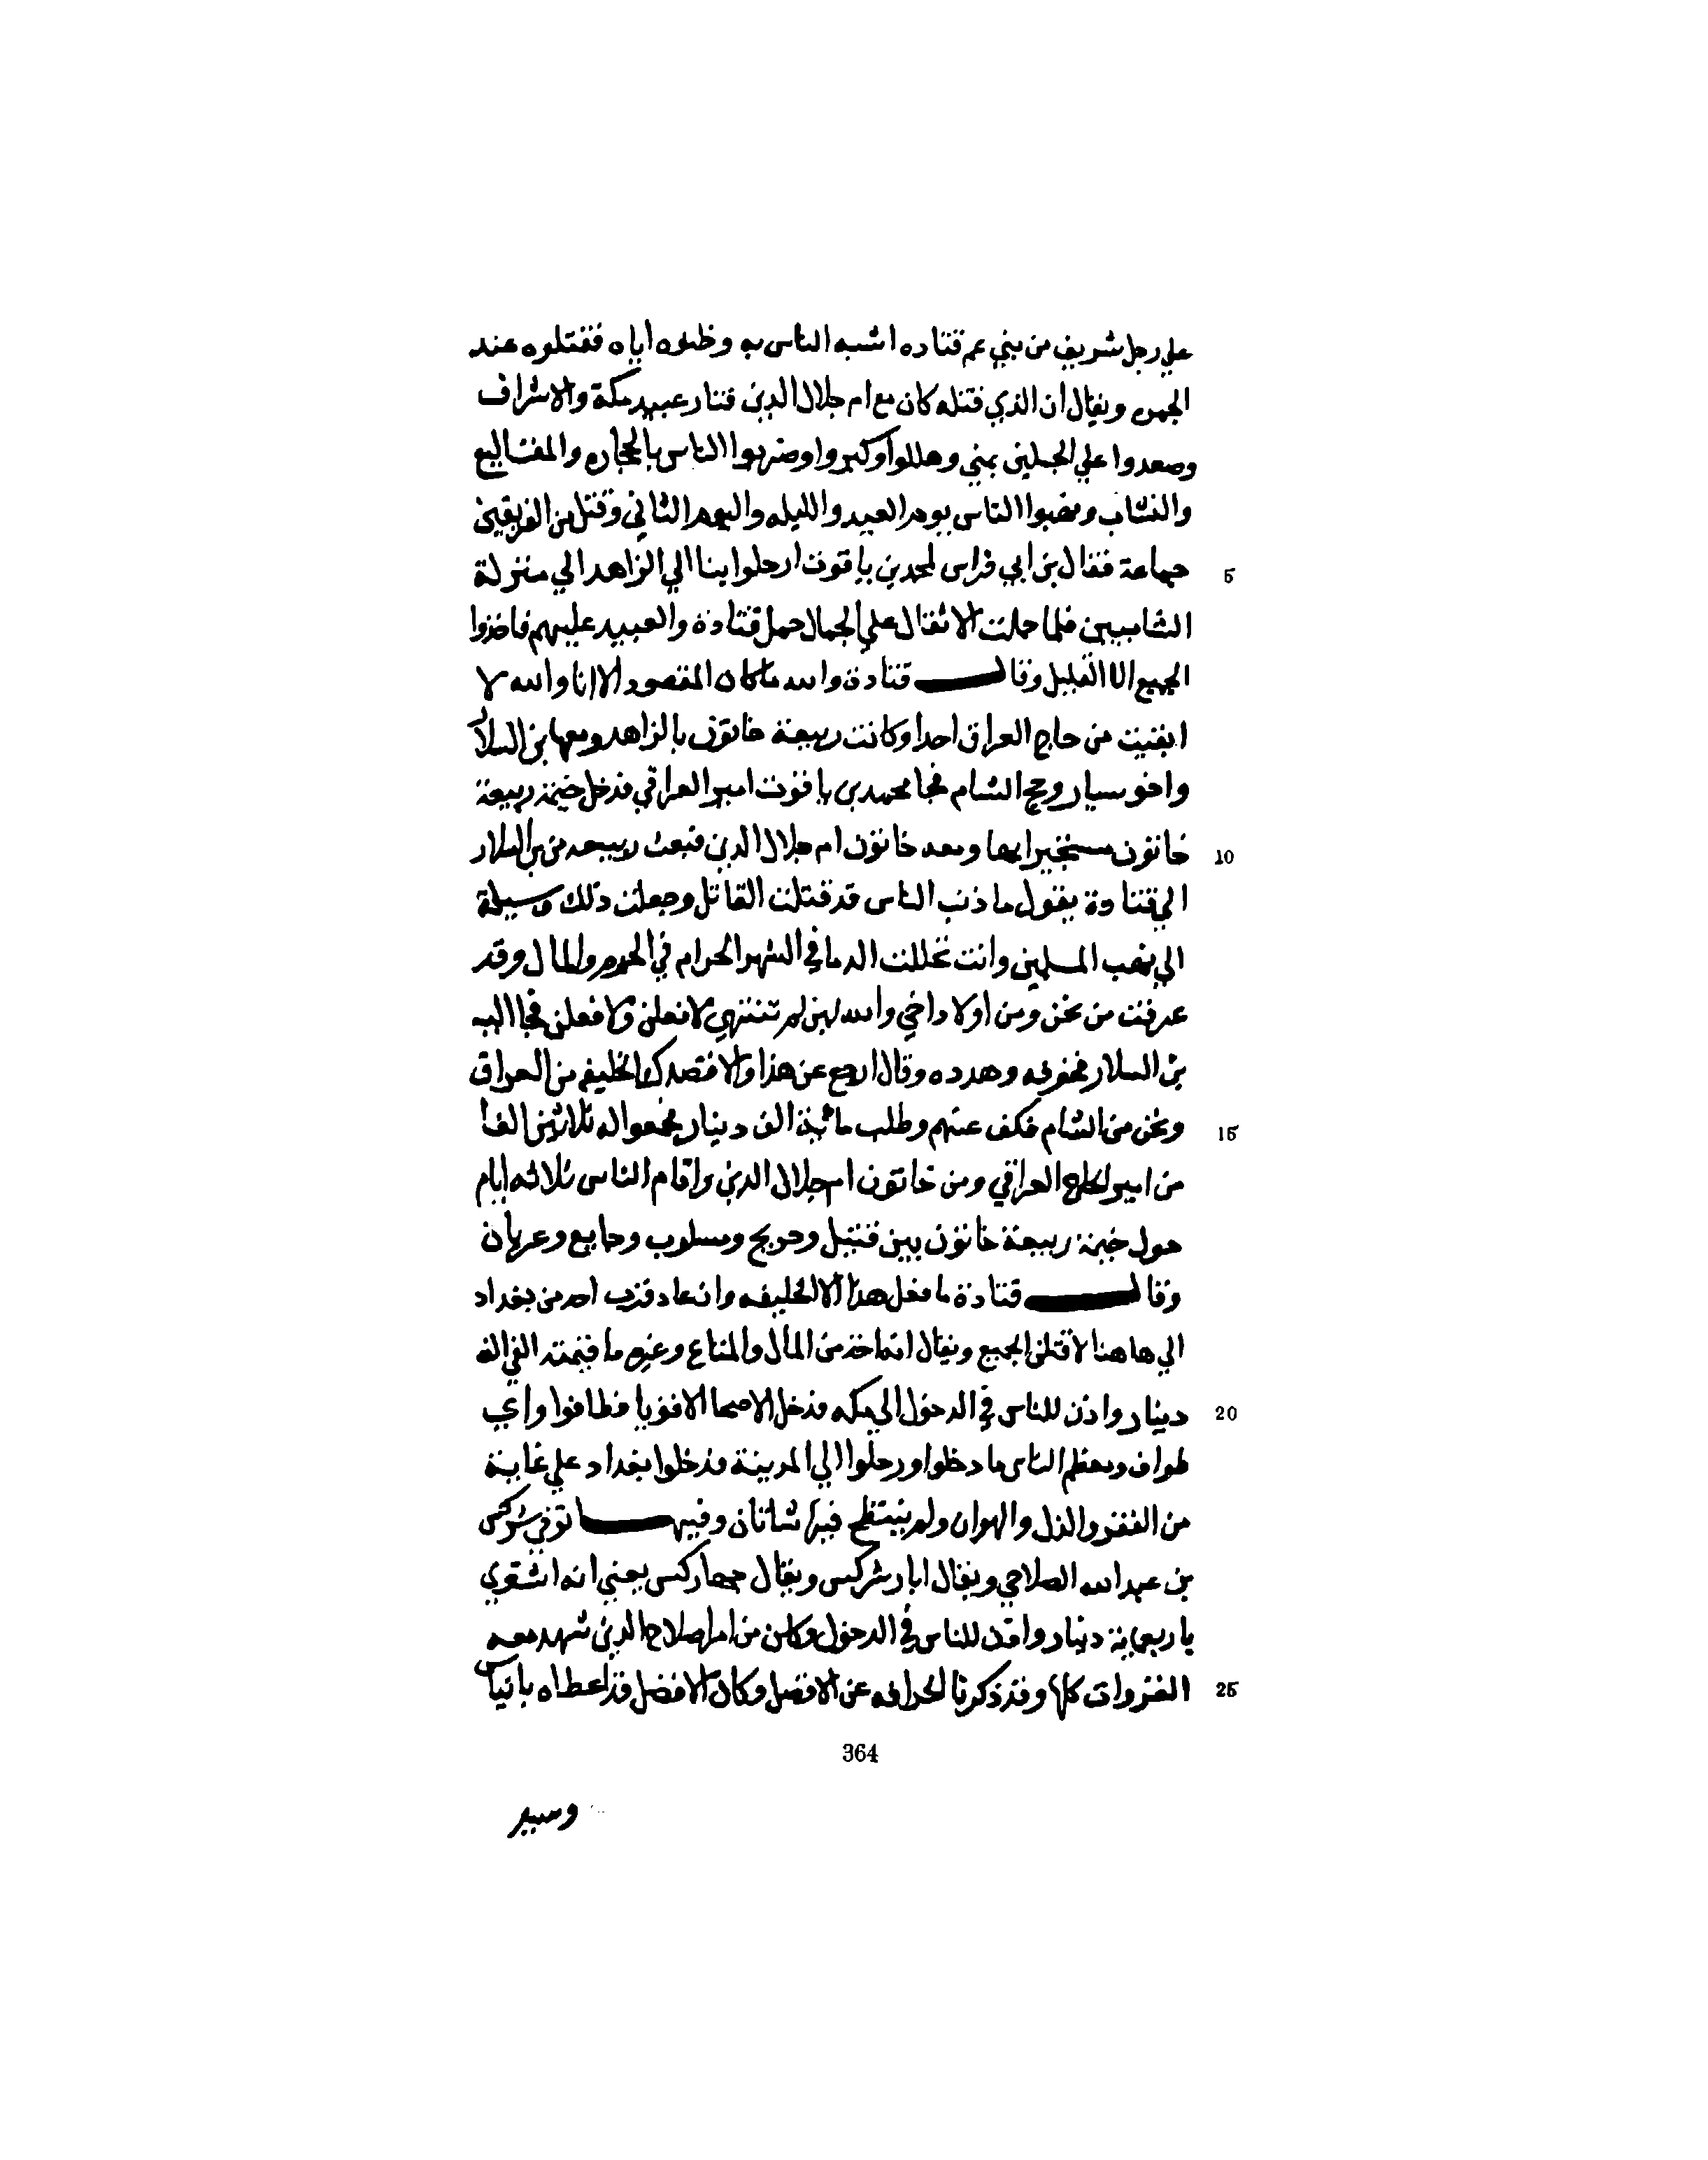 علي رجل شريف من بني عم قتاده اشبه الناس به وظنوه اياه فقتلوه عند
الجمره ويقال ان الذي قتله كان مع ام جلال الدين فثار عبيد مكة والاشراف
وصعدوا علي الجبلين بمني وهللوا وكبروا وضربوا الناس بالحجاره والمقاليع
والنشاب ونهبوا الناس يوم العيد والليله واليوم الثاني وقتل من الفريقين
5 جماعة فقال بن ابي فراس لمحمد بن ياقوت ارحلوا بنا الي الزاهد الي منزلة
الشاميين فلما حملت الاثقال علي الجمال حمل قتادة والعبيد عليهم فاخذوا
الجميع الا القليل وقال قتادة والله ما كان المقصود الا انا والله لا
ابقيت من حاج العراق احدا وكانت ربيعة خاتون بالزاهد ومعها بن السلار
واخو سياروخ وحج الشام فجا محمد بن ياقوت امير العراقي فدخل خيمة ربيعة
10 خاتون مستجيرا بها ومعه خاتون ام جلال الدين فبعث ربيعه من بن السلار
الي قتادة يقول ما ذنب الناس قد قتلت القاتل وجعلت ذلك وسيلة
الي نهب المسلمين وانت تحللت الدما في الشهر الحرام في الحرم والمال وقد
عرفت من نحن ومن اولاد اخي والله لين لم تنتهي لافعلن ولافعلن فجا اليه
بن السلار فخوفه وهدده وقال ارجع عن هذا والا قصدك الخليفه من العراق
15 ونحن من الشام فكف عنهم وطلب مائية الف دينار فجمعوا له ثلاثين الفا
من امير الحاج العراقي ومن خاتون ام جلال الدين واقام الناس ثلاثه ايام
حول خيمة ربيعة خاتون بين قتيل وجريح ومسلوب وجايع وعريان
وقال قتادة ما فعل هذا الا الخليفه وان عاد قرب احد من بغداد
الي هاهنا لاقتلن الجميع ويقال انه اخذ من المال والمتاع وغيره ما قيمته الفي الف
20 دينار واذن للناس في الدخول الي مكه فدخل الاصحا الاقويا فطافوا واي
طواف ومعظم الناس ما دخلوا ورحلوا الي المدينة ودخلوا بغداد علي غاية
من الفقر والذل والهوان ولم ينتطح فيها شاتان وفيها توفي شركس
بن عبد الله الصلاحي ويقال اياز شركس ويقال جهاركس يعني انه اشتري
باربعماية دينار واذن للناس في الدخول وكان من امرا صلاح الدين شهد معه
25 الغزوات كلها وقد ذكرنا انحرافه عن الافضل وكان الافضل قد اعطاه بانياس
364